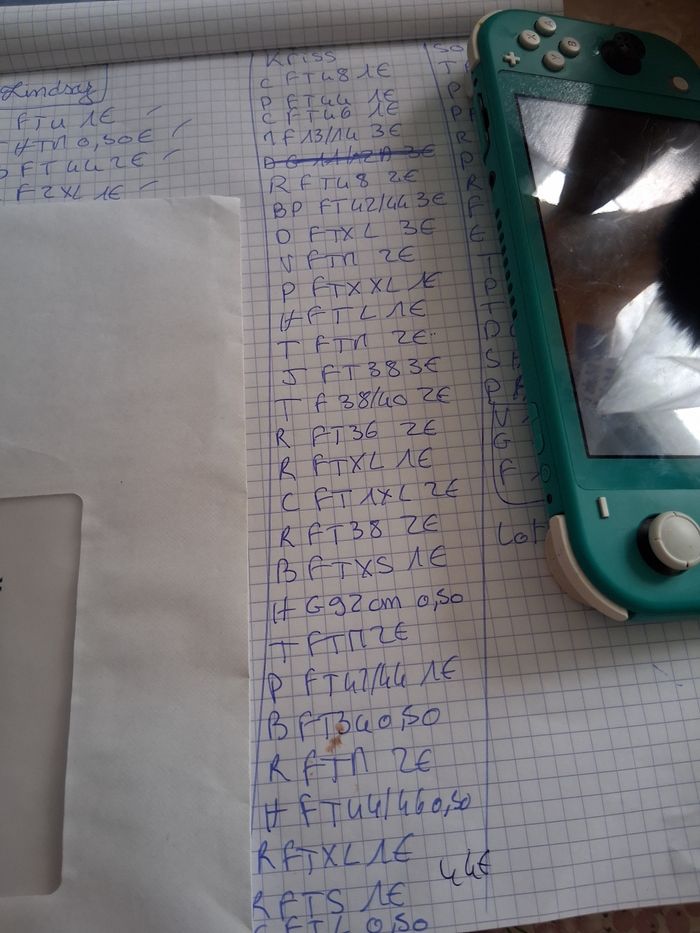 Lindsay
FTU 1€
HTM 0,50€
FT44 2€
F2XL 1€
Kriss
C FT48 1€
P FT44 1€
C FT46 1€
M F13/14 3€
R FT48 2€
BP FT42/44 3€
D FTXL 3€
V FTM 2€
P FTXXL 1€
H FTL 1€
T FTM 2€
J FT38 3€
T F38/40 2€
R FT36 2€
R FTXL 1€
C FT1XL 2€
R FT38 2€
B FTXS 1€
H G92cm 0,50
T FTM 2€
P FT42/44 1€
B FT34 0,50
R FTM 2€
H FT44/46 0,50
R FTXL 1€
R FTS 1€
C FTL 0,50
44€
T
P
R
P
R
F
E
T
P
T
D
S
P
V
G
F